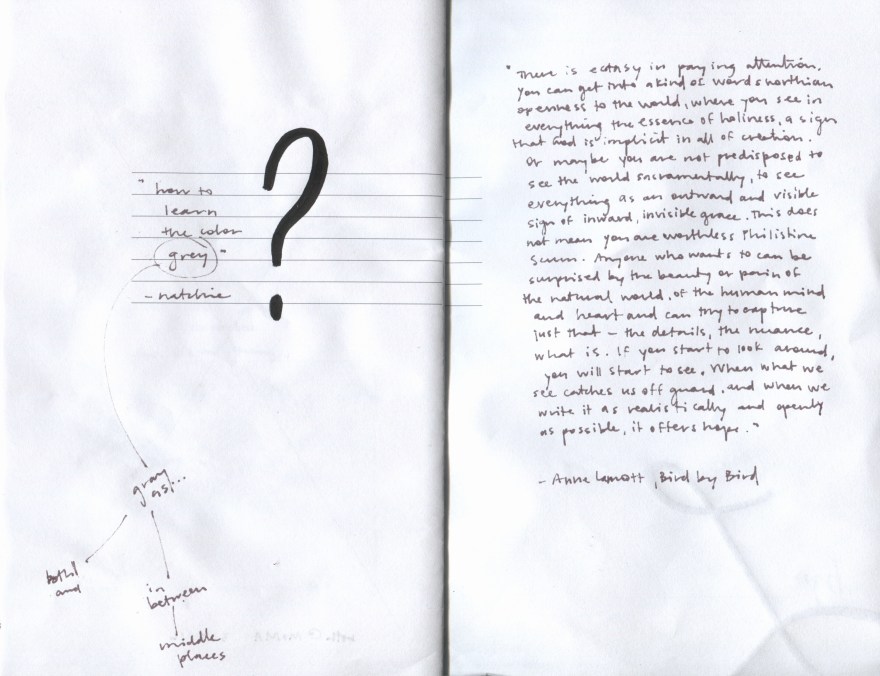 "how to
learn
the color
grey"
- natchie
?
gray
as...
both/
and
in
between
middle
places
"There is ectasy in paying attention.
You can get into a kind of wordsworthian
openness to the world, where you see in
everything the essence of holiness, a sign
that God is implicit in all of creation.
Or maybe you are not predisposed to
see the world sacramentally, to see
everything as an outward and visible
sign of inward, invisible grace. This does
not mean you are worthless Philistine
scum. Anyone who wants to can be
surprised by the beauty or pain of
the natural world, of the human mind
and heart and can try to capture
just that - the details, the nuance,
what is. If you start to look around,
you will start to see. When what we
see catches us off guard, and when we
write it as realistically and openly
as possible, it offers hope."
- Anne Lamott, Bird by Bird